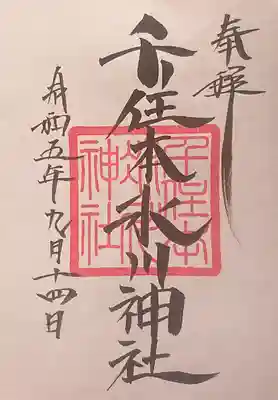 奉拝
千住本氷川神社
令和五年九月十四日
千住本
氷川
神社